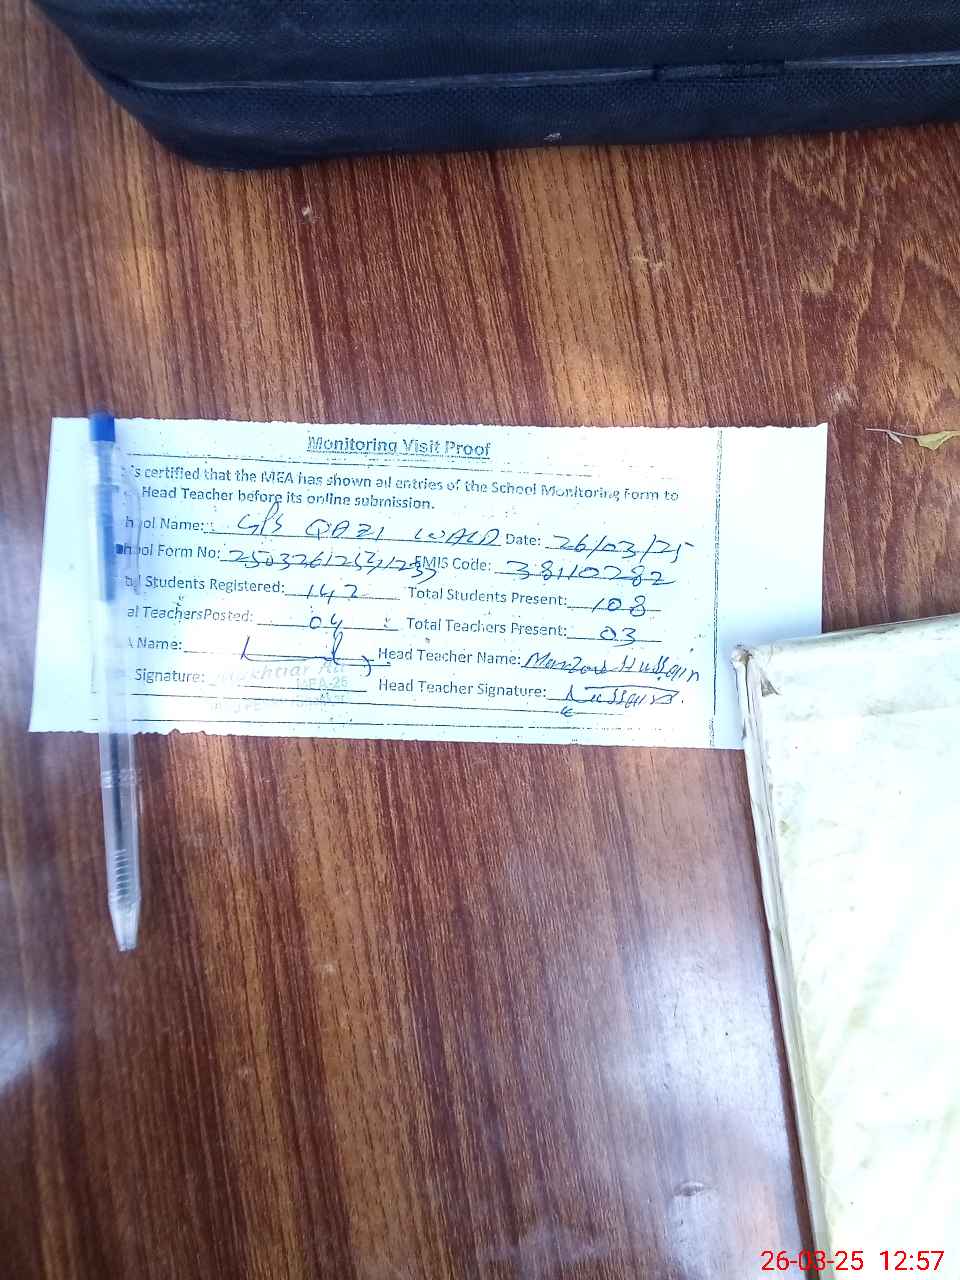 Monitoring Visit Proof
is certified that the MEA has shown all entries of the School Monitoring Form to
Head Teacher before its online submission.
hool Name: GPS QAZI WALA Date: 26/03/25
hool Form No: EMIS Code: 38110282
al Students Registered: 142 Total Students Present: 108
al TeachersPosted: 04 Total Teachers Present: 03
Name: Head Teacher Name: Manzoor Hussain
Signature: Head Teacher Signature: Hussain
MEA-26
26-03-25 12:57